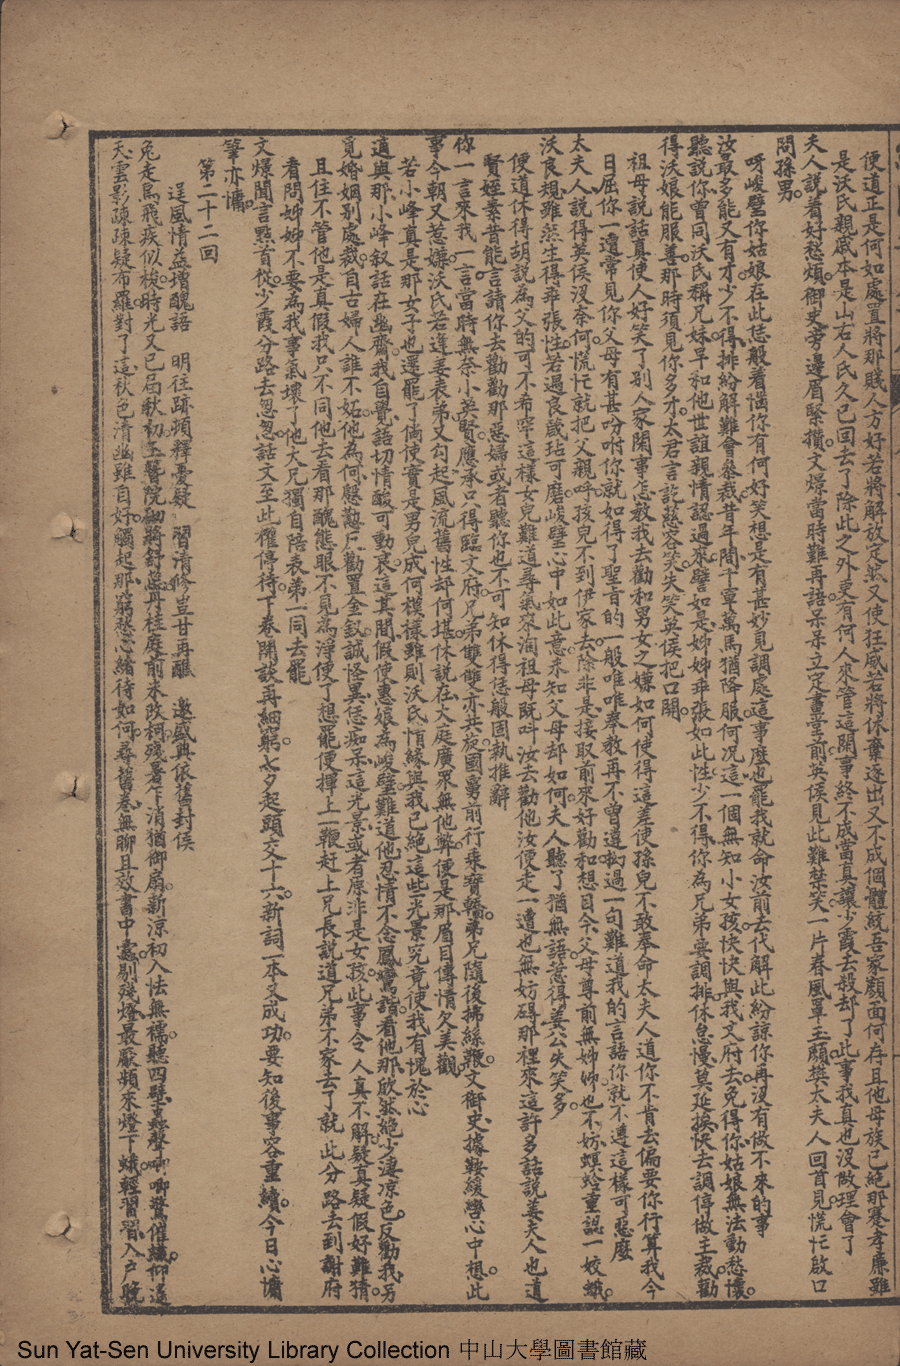 便道正是何如處置將那賤人方好若將解放定然又使狂威若將休棄逐出又不成個體統吾家顏面何存且他母族已絶那蹇孝廉雖
是沃氏親戚本是山右人氏久已回去了除此之外更有何人來管這閑事終不成當真讓少霞去殺却了此事我真也沒散理會了
夫人說着好愁煩御史旁邊眉緊攢文爍當時難再語呆呆立定畫堂前英侯見此難禁笑一片春風罩玉顏樊太夫人回首見慌忙啟口
問孫男
呀峻璧你姑娘在此恁般着惱你有何好笑想是有甚妙見調處這事麼也罷我就命汝前去代解此紛諒你再沒有做不來的事
汝最多能又有才少不得排紛解難會叅裁昔年間千軍萬馬猶降服何況這一個無知小女孩快快與我文府去免得你姑娘無法動愁懷
聽說你曾同沃氏稱兄妹早和他世誼親情認過來譬如是姊姊乖張如此性少不得你為兄弟要調排休怠慢莫延挨快去調停做主裁勸
得沃娘能服善那時須見你多才太君言訖慈容笑失笑英侯把口開
祖母說話真使人好笑了別人家閑事怎教我去勸和男女之嫌如何使得這差使孫兒不敢奉命太夫人道你不肯去偏要你行算我今
日屈你一遭常見你父母有甚吩咐你就如得了聖旨的一般唯唯奉教再不曾違拗過一句難道我的言語你就不遵這樣可惡麼
太夫人說得英侯沒奈何慌忙就把父親呼孩兒不到伊家去除非是接取前來好勸和想目今父母尊前無姊姊也不妨螟蛉重認一姣娥
沃良想雖然生得乖張性若遇良箴玷可磨峻璧心中如此意未知父母却如何夫人聽了猶無語惹得姜公失笑多
便道休得胡說為父的可不希罕這樣女兒難道尋氣來淘祖母既叫汝去勸他汝便走一遭也無妨碍那裡來這許多話說姜夫人也道
賢姪素昔能言請你去勸勸那惡婦或者聽你也不可知休得恁般固執推辭
你一言來我一言當時無奈小英賢應承只得臨文府兄弟雙雙亦共旋國舅前行乘寶轎弟兄隨後拂絲鞭文御史據鞍緩轡心中想此
事今朝又惹嫌沃氏若逢姜表弟又勾起風流舊性却何堪休說在大庭廣眾無他弊便是那眉目傳情欠美觀
若小峰真是那女子也還罷了倘使實是男兒成何模樣雖則沃氏情緣與我已絶這些光景究竟使我有愧於心
適與那小峰叙話在幽齋我自覺語切情酸可動哀這其間假使惠娘為峻璧難道他忍情不念鳳鸞諧看他那欣然絶少淒凉色反勸我另
覓婚姻別處裁自古婦人誰不妬他為何慇懃尸勸置金釵誠怪異恁痴呆這光景或者原非是女孩此事令人真不解疑真疑假好難猜
且住不管他是真假我只不同他去看那醜態眼不見為淨便了想罷便揮上一鞭赶上兄長說道兄弟不家去了就此分路去到謝府
看問姊姊不要為我事氣壞了他大兄獨自陪表弟一同去罷
文爍聞言點首從少霞分路去怱怱話文至此權停待下卷開談再細窮七夕起頭交十六新詞一本又成功要知後事容重續今日心慵
筆亦慵
第二十二回
逞風情益增醜語　明往跡頻釋憂疑　習清修豈甘再醮　邀盛典依舊封侯
兔走烏飛疾似梭時光又已屆秋初玉簪院砌將舒蕊丹桂庭前未改柯殘暑乍消猶御扇新凉初入怯無襦聽四壁蟲聲唧唧驚催織仰遠
天雲影疎疎疑布羅對了這秋色清幽雖自好觸起那窮愁心緒待如何尋舊卷無聊且效書中蠹剔殘燈最厭頻來燈下蛾輕習習入戶晚
Sun Yat-Sen University Library Collection 中山大學圖書館藏